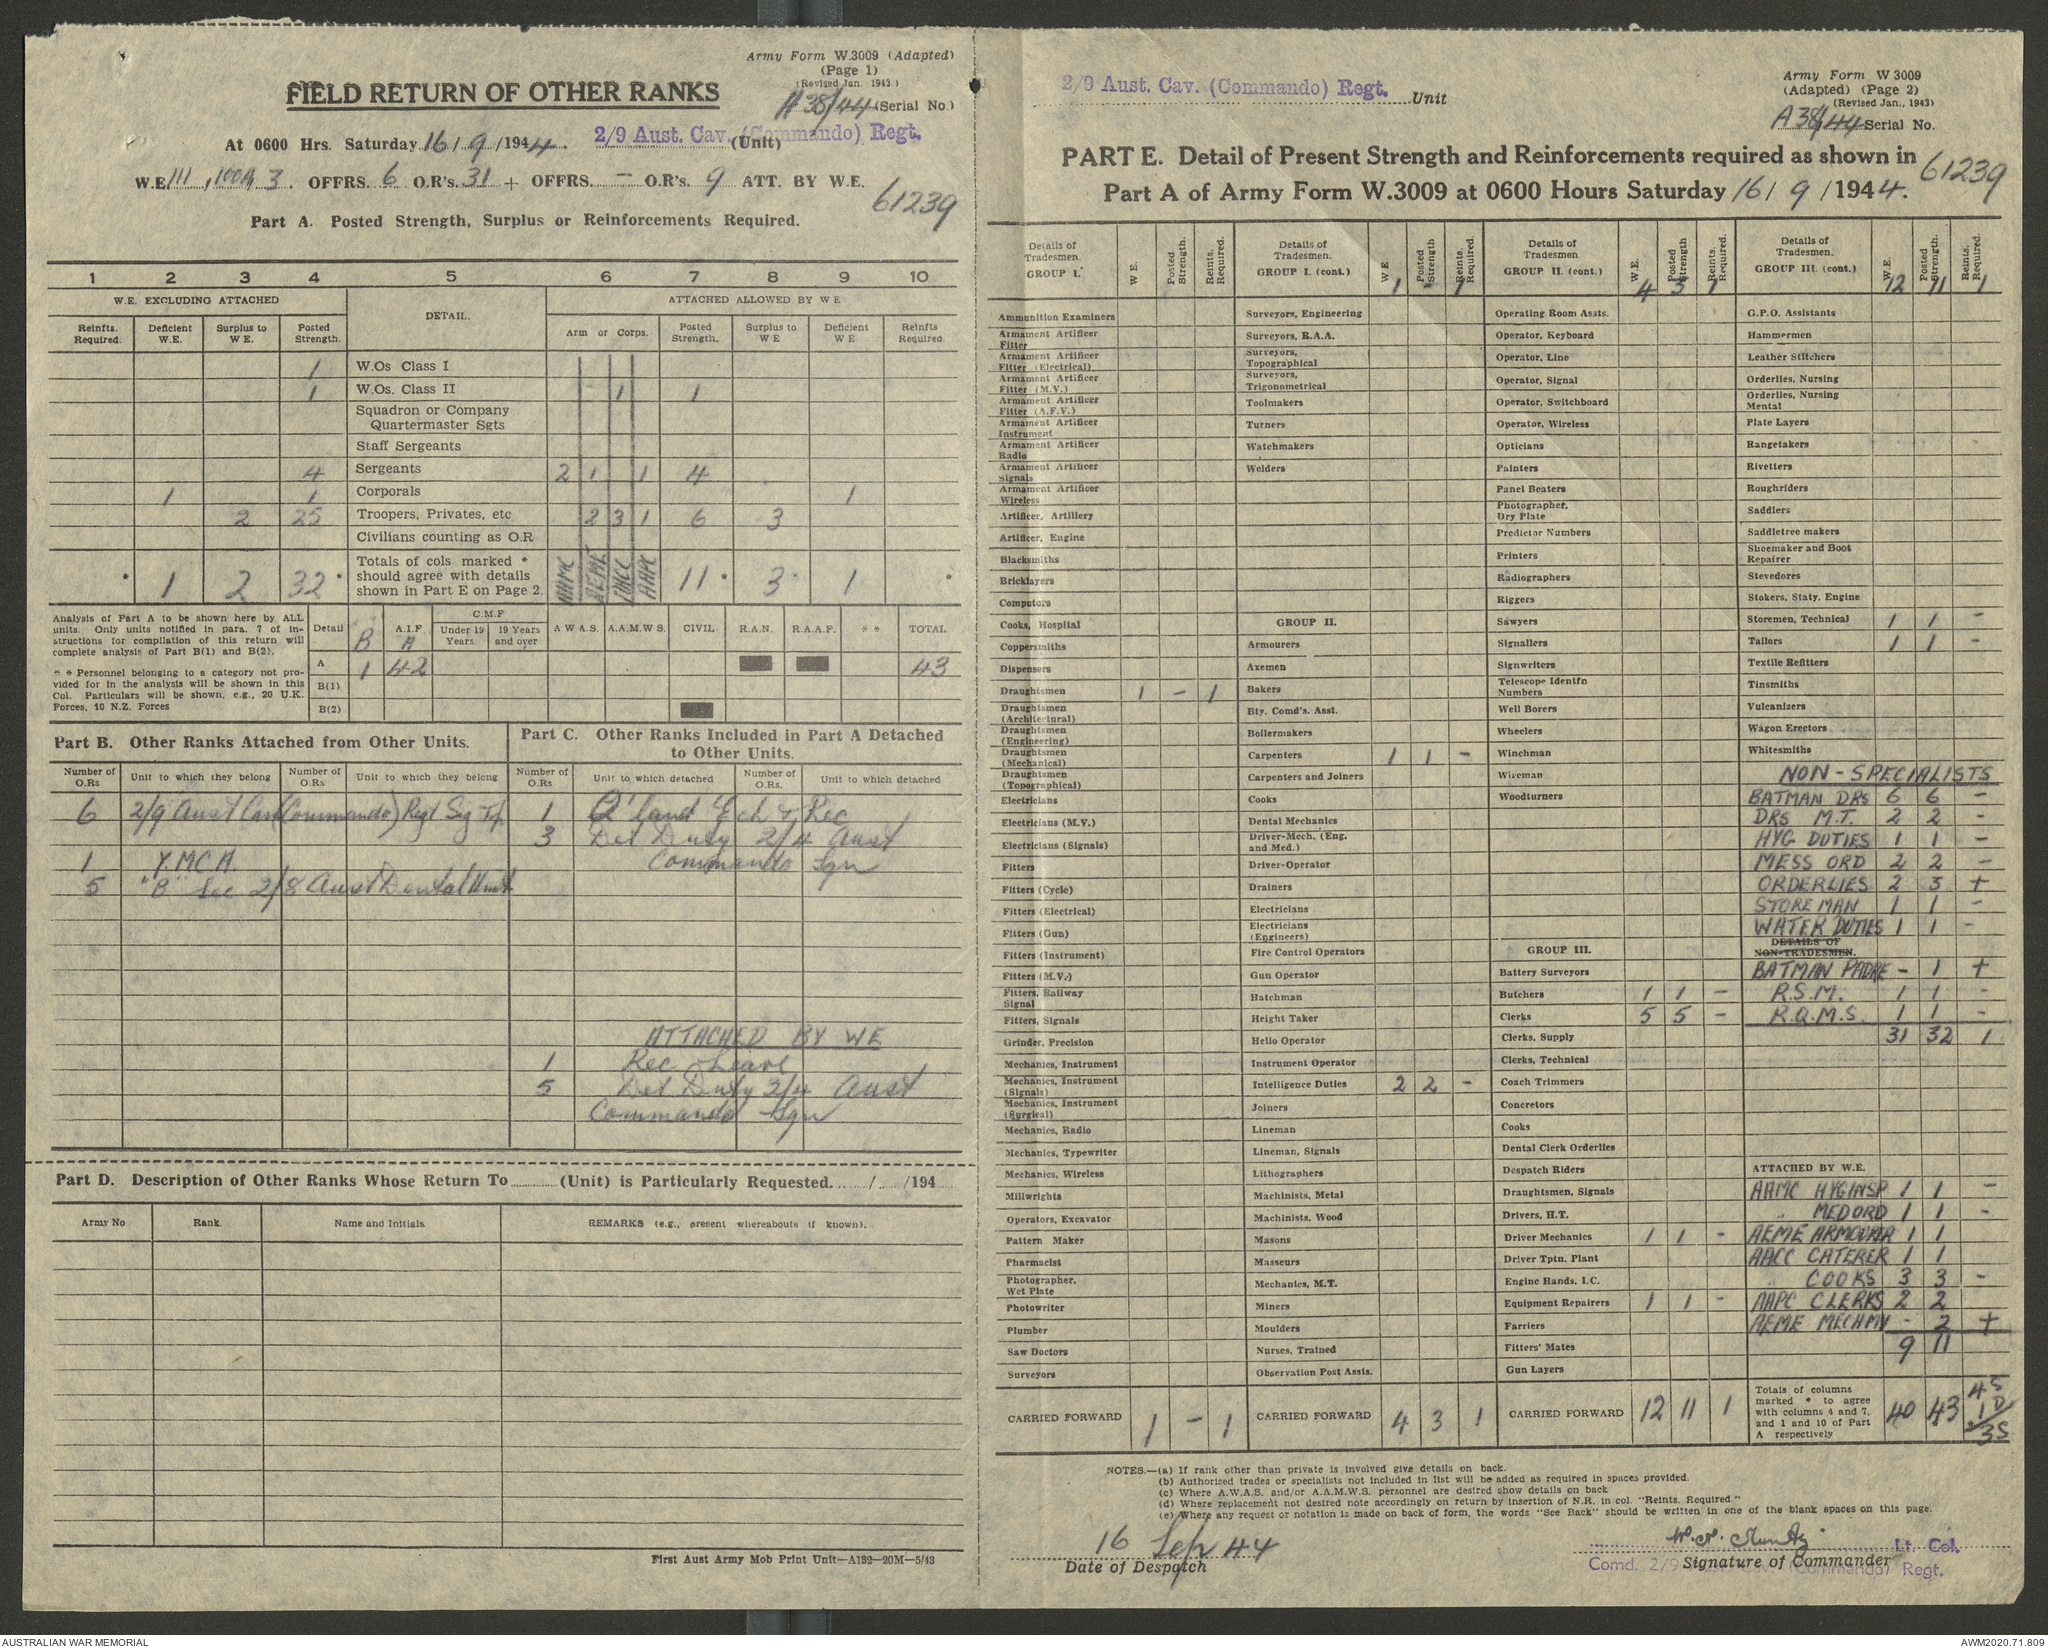 Army Form W.3009 (Adapted)
(Page 1)
(Revised Jan. 1943.)
FIELD RETURN OF OTHER RANKS
A38/44 (Serial No.)
At 0600 Hrs. Saturday 16/9/1944. 2/9 Aust. Cav. (Commando) Regt. (Unit)
W.E. III, 100A, 3. OFFRS. 6 O.R's. 31 + OFFRS. – O.R's. 9 ATT. BY W.E.
61239
Part A. Posted Strength, Surplus or Reinforcements Required.
1 2 3 4 5 6 7 8 9 10
W.E. EXCLUDING ATTACHED DETAIL. ATTACHED ALLOWED BY W E
Reinfts. Required. Deficient W.E. Surplus to W E. Posted Strength. Arm or Corps. Posted Strength. Surplus to W E Deficient W E Reinfts Required
1 W.Os Class I
1 W.Os. Class II - 1 1
Squadron or Company
Quartermaster Sgts
Staff Sergeants
4 Sergeants 2 1 1 4
1 1 Corporals 1
2 25 Troopers, Privates, etc 2 3 1 6 3
Civilians counting as O.R
* 1 2 32 * Totals of cols marked * should agree with details shown in Part E on Page 2. AAMC AEME AACC AAPC 11 * 3 * 1 *
Analysis of Part A to be shown here by ALL units. Only units notified in para. 7 of instructions for compilation of this return will complete analysis of Part B(1) and B(2).
* * Personnel belonging to a category not provided for in the analysis will be shown in this Col. Particulars will be shown, e.g., 20 U.K. Forces, 10 N.Z. Forces
Detail B A.I.F A C.M.F Under 19 Years. 19 Years and over A W A S. A.A.M.W S. CIVIL R.A.N. R.A.A.F. * * TOTAL
A 1 42 43
B(1)
B(2)
Part B. Other Ranks Attached from Other Units.
Number of O.Rs Unit to which they belong Number of O.Rs Unit to which they belong
6 2/9 Aust Cav (Commando) Regt Sig Tp.
1 Y.M.C.A.
5 "B" Sec 2/8 Aust Dental Unit
Part C. Other Ranks Included in Part A Detached to Other Units.
Number of O.Rs Unit to which detached Number of O.Rs. Unit to which detached
1 Q'land Ech & Rec
3 Det Duty 2/4 Aust
Commando Sqn
ATTACHED BY WE
1 Rec Leave
5 Det Duty 2/4 Aust
Commando Sqn
Part D. Description of Other Ranks Whose Return To (Unit) is Particularly Requested. / /194
Army No Rank. Name and Initials REMARKS (e.g., present whereabouts if known).
First Aust Army Mob Print Unit—A132—20M—5/43
2/9 Aust. Cav. (Commando) Regt. Unit
Army Form W 3009
(Adapted) (Page 2)
(Revised Jan., 1943)
A38/44 Serial No.
PART E. Detail of Present Strength and Reinforcements required as shown in
Part A of Army Form W.3009 at 0600 Hours Saturday 16/9/1944.
61239
Details of Tradesmen. GROUP I. W E. Posted Strength. Reints. Required.
Ammunition Examiners
Armament Artificer Fitter
Armament Artificer Fitter (Electrical)
Armament Artificer Fitter (M.V.)
Armament Artificer Fitter (A.F.V.)
Armament Artificer Instrument
Armament Artificer Radio
Armament Artificer Signals
Armament Artificer Wireless
Artificer, Artillery
Artificer, Engine
Blacksmiths
Bricklayers
Computors
Cooks, Hospital
Coppersmiths
Dispensers
Draughtsmen 1 - 1
Draughtsmen (Architectural)
Draughtsmen (Engineering)
Draughtsmen (Mechanical)
Draughtsmen (Topographical)
Electricians
Electricians (M.V.)
Electricians (Signals)
Fitters
Fitters (Cycle)
Fitters (Electrical)
Fitters (Gun)
Fitters (Instrument)
Fitters (M.V.)
Fitters, Railway Signal
Fitters, Signals
Grinder, Precision
Mechanics, Instrument
Mechanics, Instrument (Signals)
Mechanics, Instrument (Surgical)
Mechanics, Radio
Mechanics, Typewriter
Mechanics, Wireless
Millwrights
Operators, Excavator
Pattern Maker
Pharmacist
Photographer, Wet Plate
Photowriter
Plumber
Saw Doctors
Surveyors
CARRIED FORWARD 1 - 1
Details of Tradesmen. GROUP I. (cont.) W E Posted Strength Reints. Required.
1 - 1
Surveyors, Engineering
Surveyors, R.A.A.
Surveyors, Topographical
Surveyors, Trigonometrical
Toolmakers
Turners
Watchmakers
Welders
GROUP II.
Armourers
Axemen
Bakers
Bty. Comd's. Asst.
Boilermakers
Carpenters 1 1 -
Carpenters and Joiners
Cooks
Dental Mechanics
Driver-Mech. (Eng. and Med.)
Driver-Operator
Drainers
Electricians
Electricians (Engineers)
Fire Control Operators
Gun Operator
Hatchman
Height Taker
Helio Operator
Instrument Operator
Intelligence Duties 2 2 -
Joiners
Lineman
Lineman, Signals
Lithographers
Machinists, Metal
Machinists, Wood
Masons
Masseurs
Mechanics, M.T.
Miners
Moulders
Nurses, Trained
Observation Post Assts.
CARRIED FORWARD 4 3 1
Details of Tradesmen. GROUP II. (cont.) W.E. Posted Strength Reints. Required.
4 3 1
Operating Room Assts.
Operator, Keyboard
Operator, Line
Operator, Signal
Operator, Switchboard
Operator, Wireless
Opticians
Painters
Panel Beaters
Photographer, Dry Plate
Predictor Numbers
Printers
Radiographers
Riggers
Sawyers
Signallers
Signwriters
Telescope Identfn Numbers
Well Borers
Wheelers
Winchman
Wireman
Woodturners
GROUP III.
Battery Surveyors
Butchers 1 1 -
Clerks 5 5 -
Clerks, Supply
Clerks, Technical
Coach Trimmers
Concretors
Cooks
Dental Clerk Orderlies
Despatch Riders
Draughtsmen, Signals
Drivers, H.T.
Driver Mechanics 1 1 -
Driver Tptn. Plant
Engine Hands, I.C.
Equipment Repairers 1 1 -
Farriers
Fitters' Mates
Gun Layers
CARRIED FORWARD 12 11 1
Details of Tradesmen. GROUP III. (cont.) W.E. Posted Strength. Reints. Required.
12 11 1
G.P.O. Assistants
Hammermen
Leather Stitchers
Orderlies, Nursing
Orderlies, Nursing Mental
Plate Layers
Rangetakers
Rivetters
Roughriders
Saddlers
Saddletree makers
Shoemaker and Boot Repairer
Stevedores
Stokers, Staty. Engine
Storemen, Technical 1 1 -
Tailors 1 1 -
Textile Refitters
Tinsmiths
Vulcanizers
Wagon Erectors
Whitesmiths
NON-SPECIALISTS
BATMAN DRS 6 6 -
DRS M.T. 2 2 -
HYG DUTIES 1 1 -
MESS ORD 2 2 -
ORDERLIES 2 3 +
STOREMAN 1 1 -
WATER DUTIES 1 1 -
DETAILS OF NON-TRADESMEN.
BATMAN PADRE - 1 +
R.S.M. 1 1 -
R.Q.M.S. 1 1 -
31 32 1
ATTACHED BY W.E.
AAMC HYG INSP 1 1 -
" MED ORD 1 1 -
AEME ARMOURER 1 1
AACC CATERER 1 1
" COOKS 3 3 -
AAPC CLERKS 2 2
AEME MECH MV - 2 +
9 11
Totals of columns marked * to agree with columns 4 and 7, and 1 and 10 of Part A respectively 40 43 4S 1D 3S
NOTES.—(a) If rank other than private is involved give details on back.
(b) Authorised trades or specialists not included in list will be added as required in spaces provided.
(c) Where A.W.A.S. and/or A.A.M.W.S. personnel are desired show details on back
(d) Where replacement not desired note accordingly on return by insertion of N.R. in col. "Reints. Required."
(e) Where any request or notation is made on back of form, the words "See Back" should be written in one of the blank spaces on this page.
16 Sep 44
Date of Despatch
Lt. Col.
Signature of Commander
Comd. 2/9 Aust. Cav. (Commando) Regt.
AUSTRALIAN WAR MEMORIAL
AWM2020.71.809